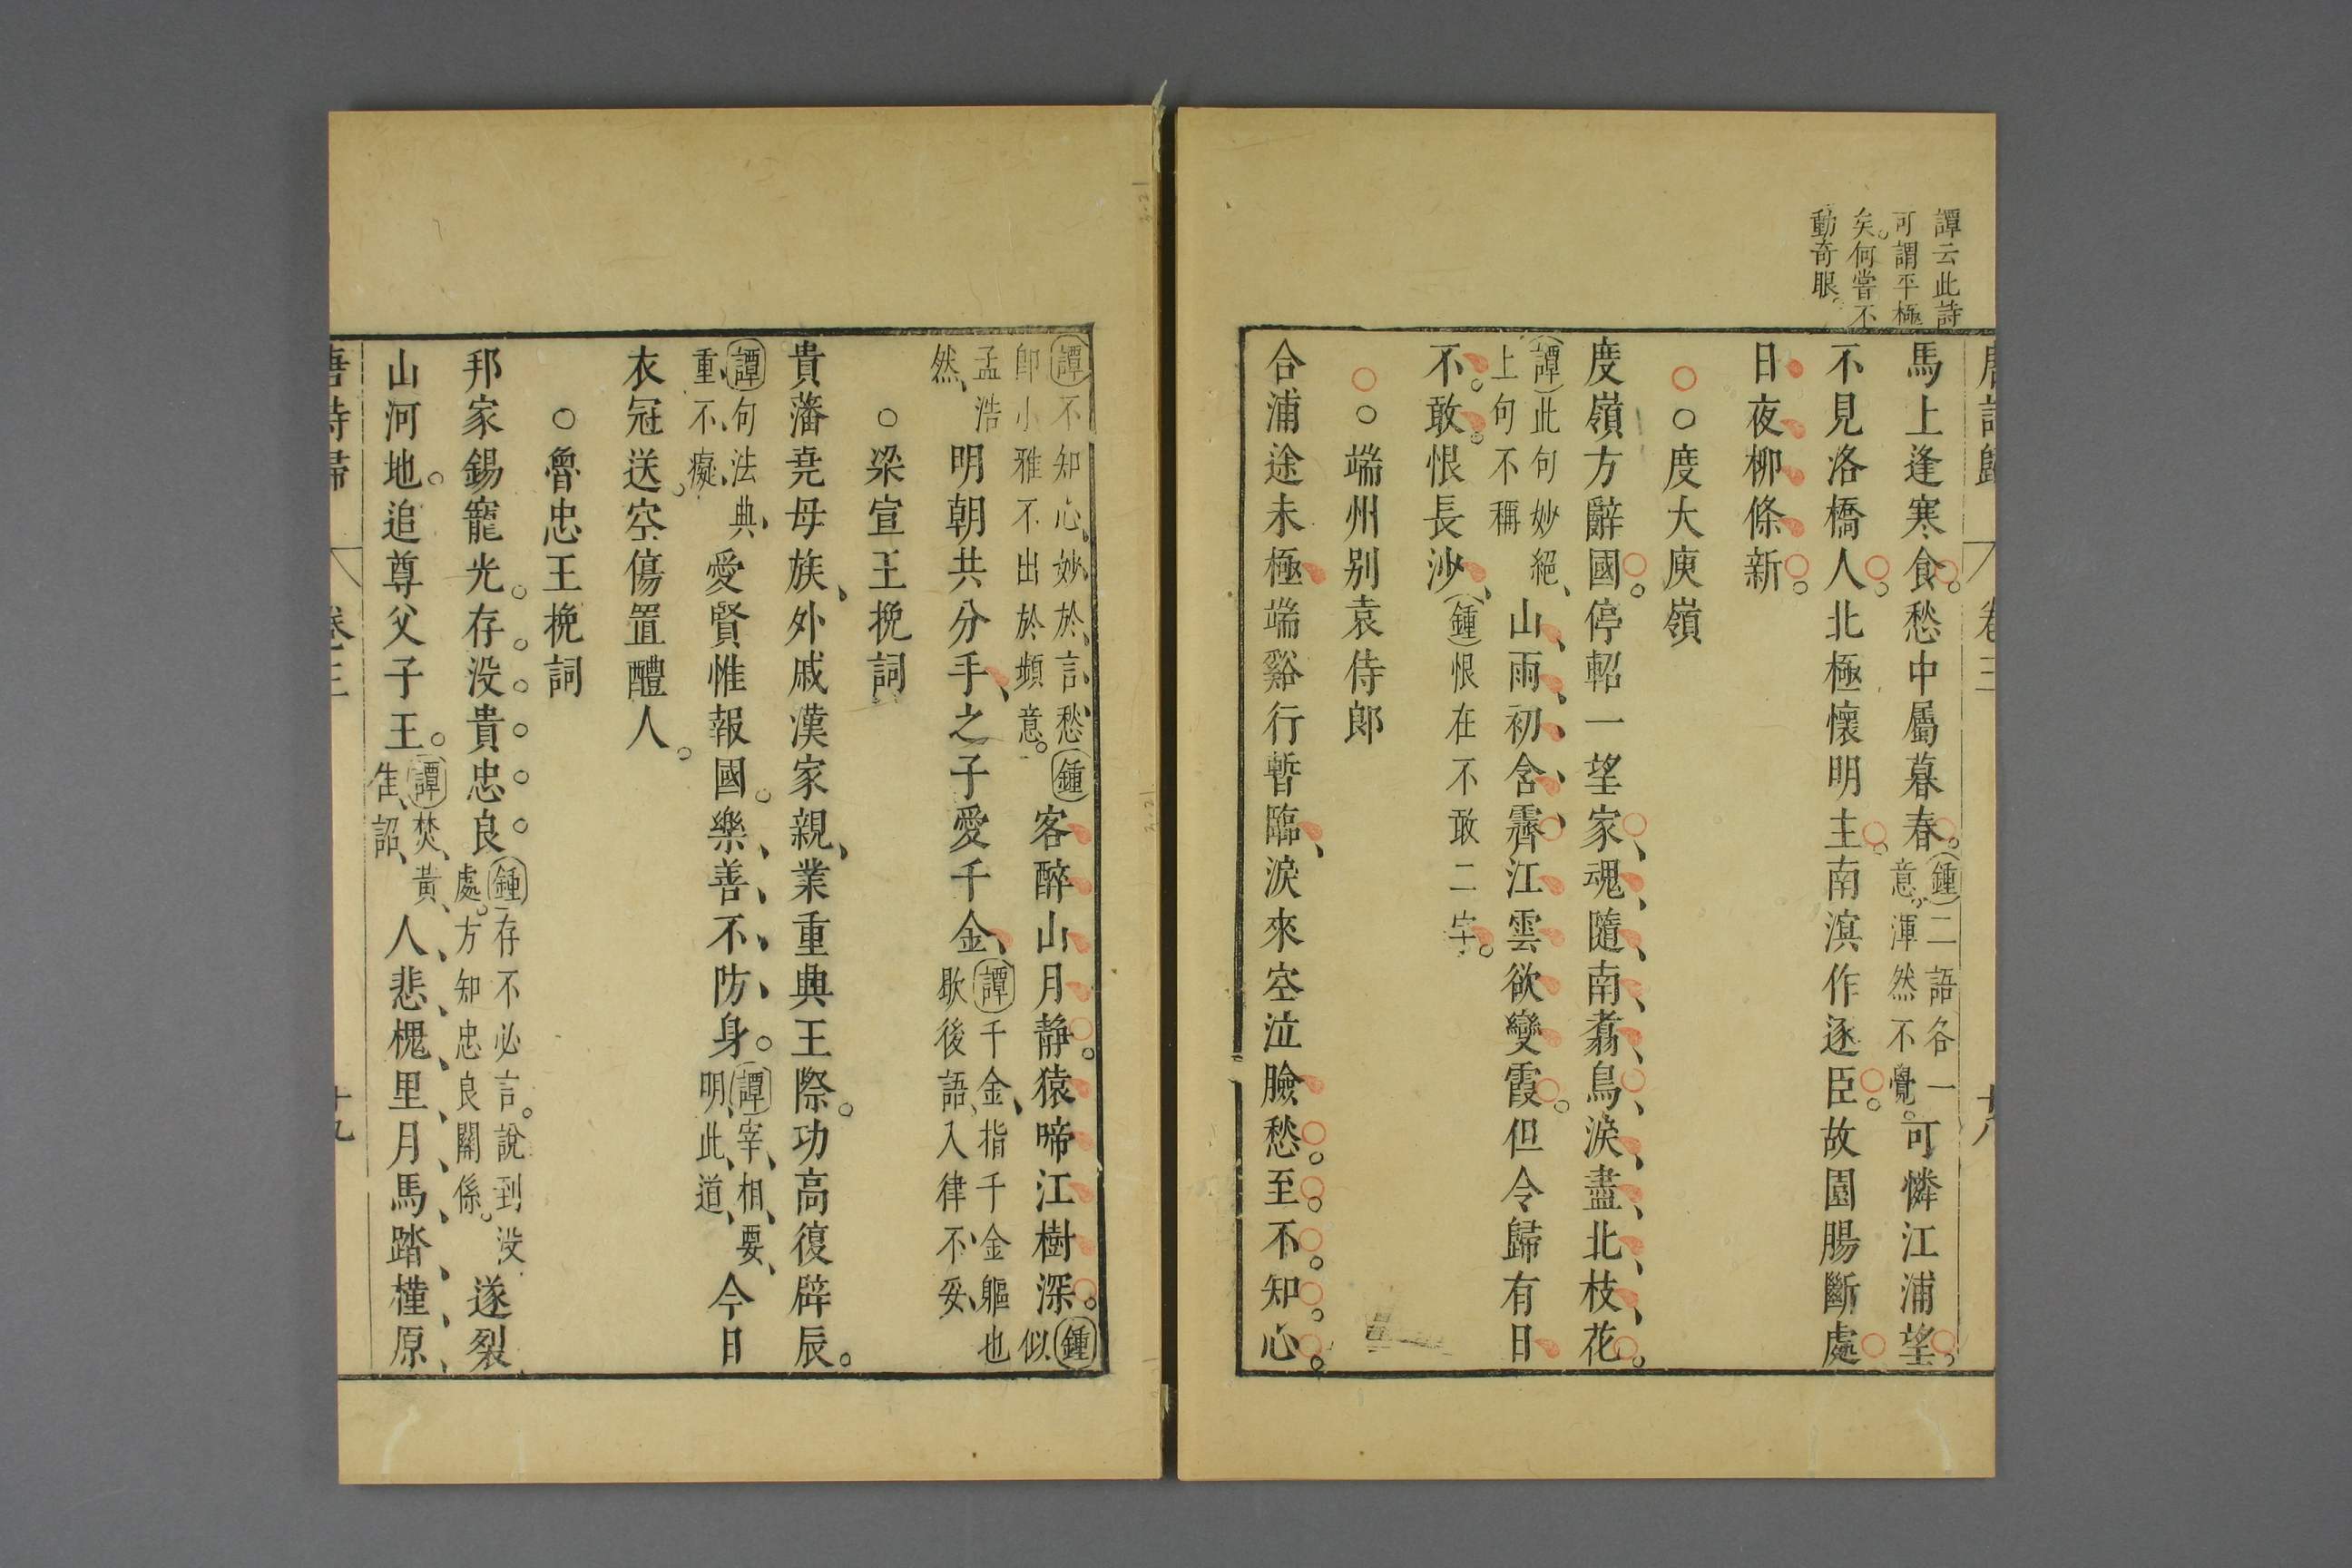 譚云此詩
可謂平極
矣何嘗不
動奇眼
唐詩歸 卷三 十八
馬上逢寒食愁中屬暮春鍾二語各一意渾然不覺可憐江浦望
不見洛橋人北極懷明主南溟作逐臣故園腸斷處
日夜柳條新
○度大庾嶺
度嶺方辭國停軺一望家魂隨南翥鳥淚盡北枝花
譚此句妙絕上句不稱山雨初含霽江雲欲變霞但令歸有日
不敢恨長沙鍾恨在不敢二字
○端州别袁侍郎
合浦途未極端谿行暫臨淚來空泣臉愁至不知心
譚不知心妙於言愁鍾卽小雅不出於熲意客醉山月静猿啼江樹深鍾似
孟浩然明朝共分手之子愛千金譚千金指千金軀也歇後語入律不妥
○梁宣王挽詞
貴藩堯母族外戚漢家親業重興王際功高復辟辰
譚句法典重不癡愛賢惟報國樂善不防身譚宰相要明此道今日
衣冠送空傷置醴人
○魯忠王挽詞
邦家錫寵光存没貴忠良鍾存不必言說到没處方知忠良關係遂裂
山河地追尊父子王譚焚黃隹詔人悲槐里月馬踏槿原
唐詩歸 卷三 十九